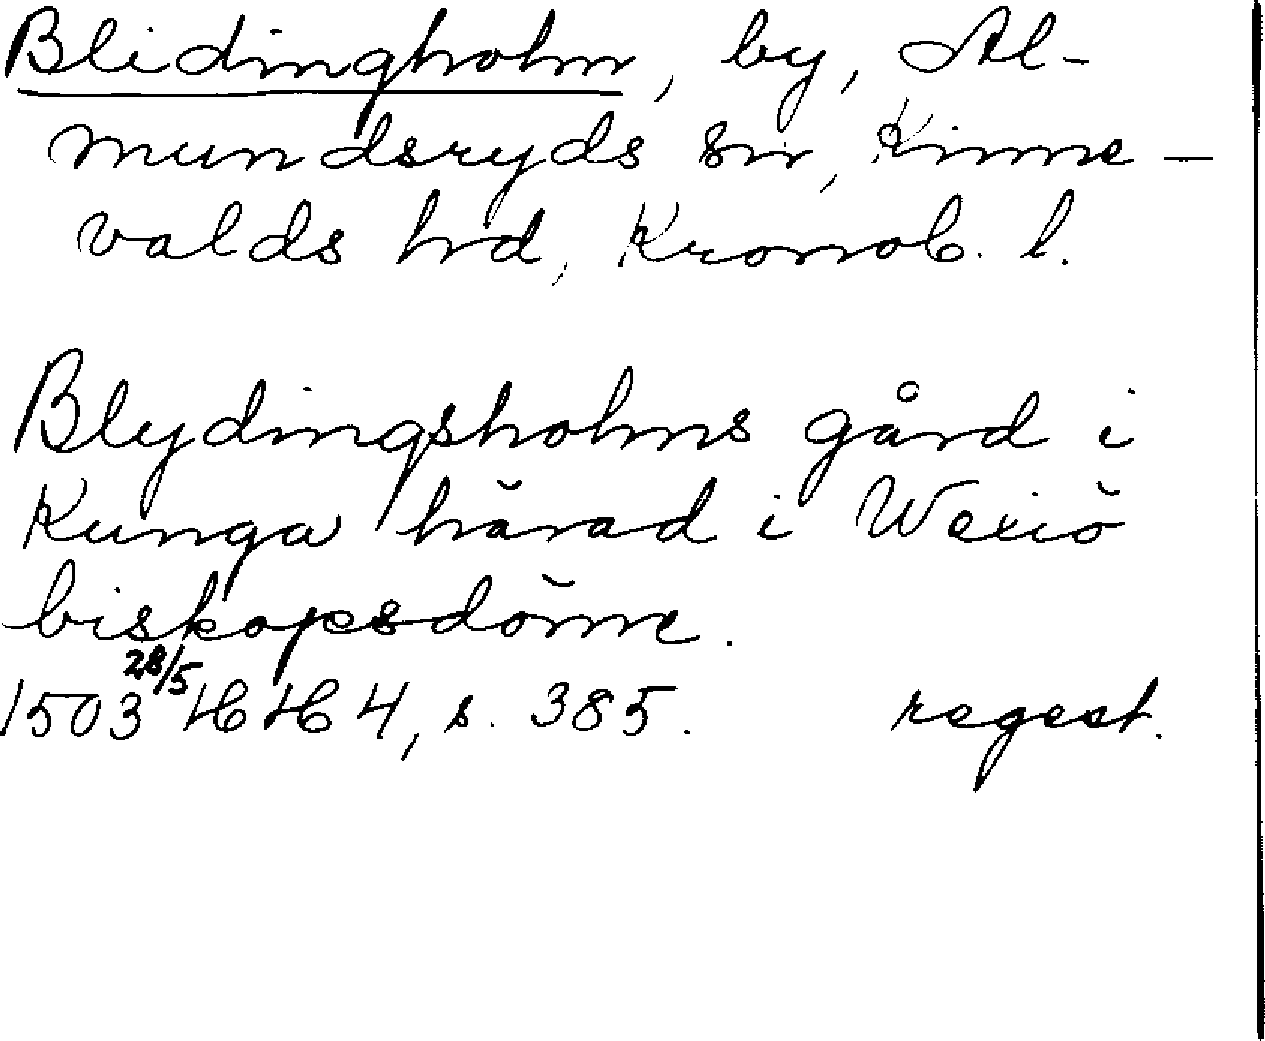 Blidingholm, by, Al-
mundsryds sn, Kinne-
valds hrd, Kronob. l.
Blydingsholms gård i
Kunga härad i Wexiö
biskopsdöme.
1503 28/5 HH 4, s. 385. regest.